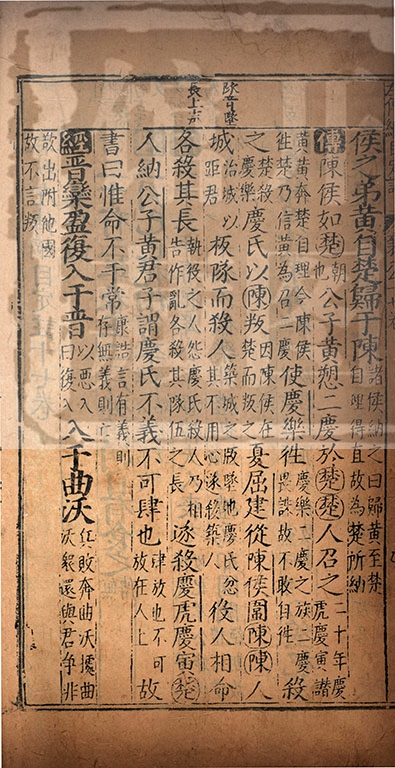 侯之弟黃自楚歸于陳諸侯納之曰歸黃至楚自理得直故為楚所納
傳陳侯如楚朝也公子黃愬二慶於楚楚人召之二十年慶虎慶寅譖
黃黃奔楚自理今陳侯往楚乃信黃為召二慶使慶樂往慶樂二慶之族二慶畏誅故不敢自往殺
之楚殺慶樂慶氏以陳叛因陳侯在楚而叛之夏屈建從陳侯圍陳陳人
城治城以距君板隊而殺人築城之版墜地慶氏忿其不用心遂殺築人役人相命
各殺其長執役之人怨慶氏殺人乃相告作亂各殺其隊伍之長遂殺慶虎慶寅楚
人納公子黃君子謂慶氏不義不可肆也肆放也不可放在人上故
書曰惟命不于常康誥言有義則存無義則亡
經晉欒盈復入于晉以惡入曰復入入于曲沃敗奔曲沃據曲沃衆還與君爭非
欲出附他國故不言叛
隊音墜
長上声